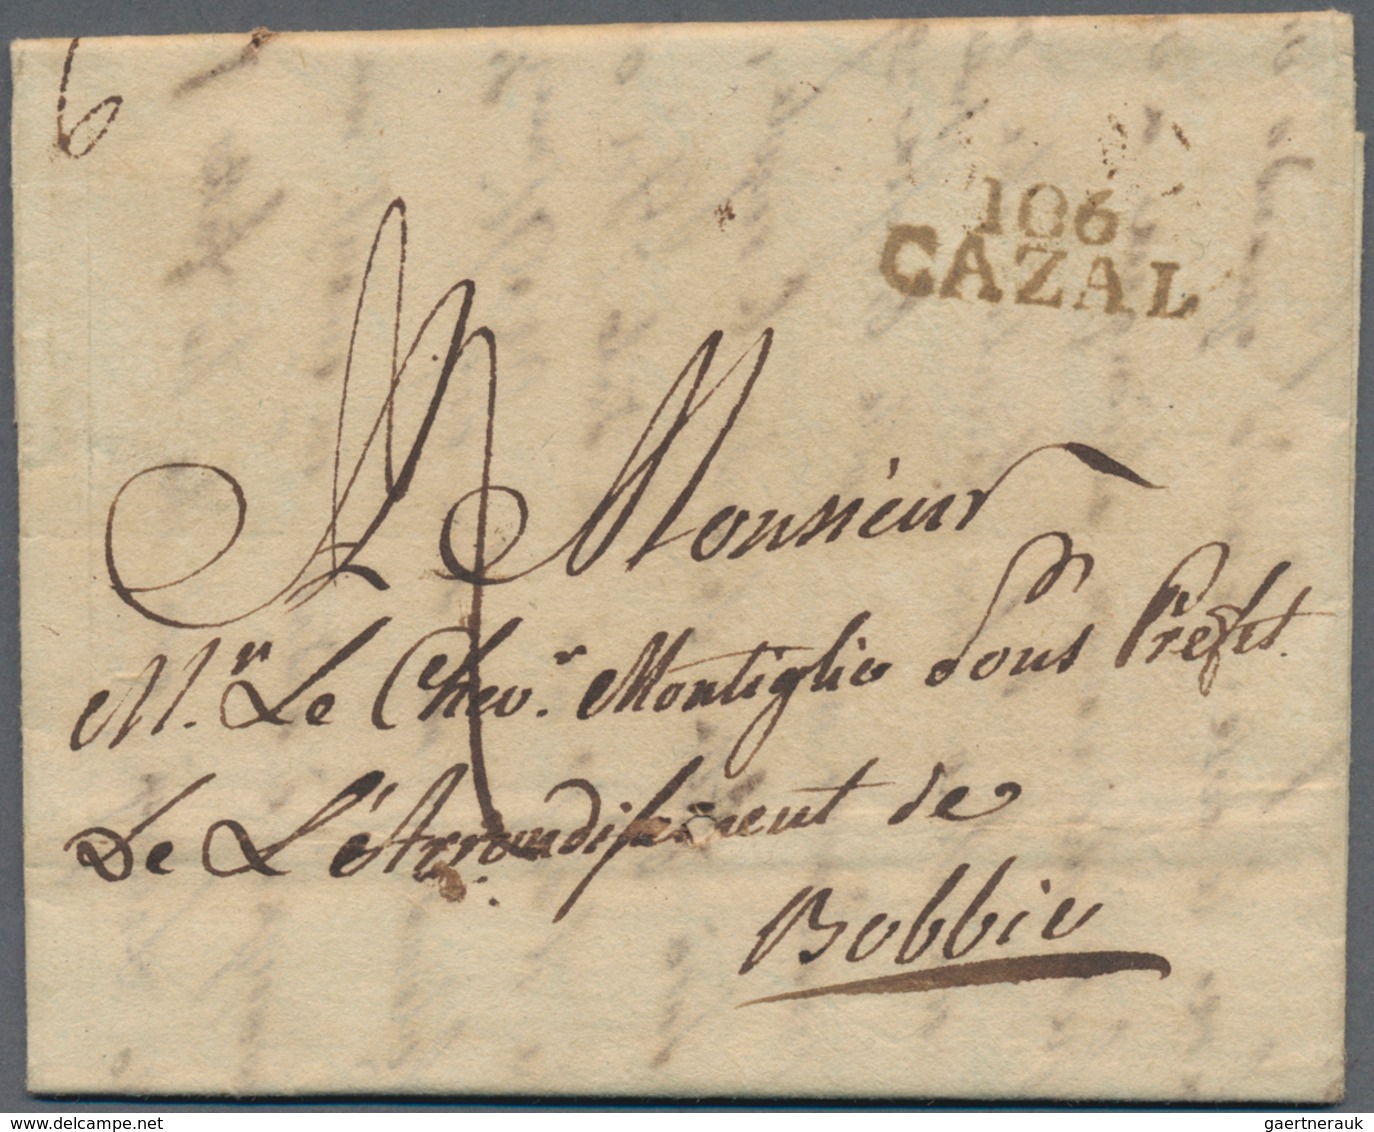 6
106
CAZAL
Monsieur
Mr. Le Chev.r Montiglio Sous Préfet.
De L'Arrondissement de
Bobbio
delcampe.net
gaertnerauk